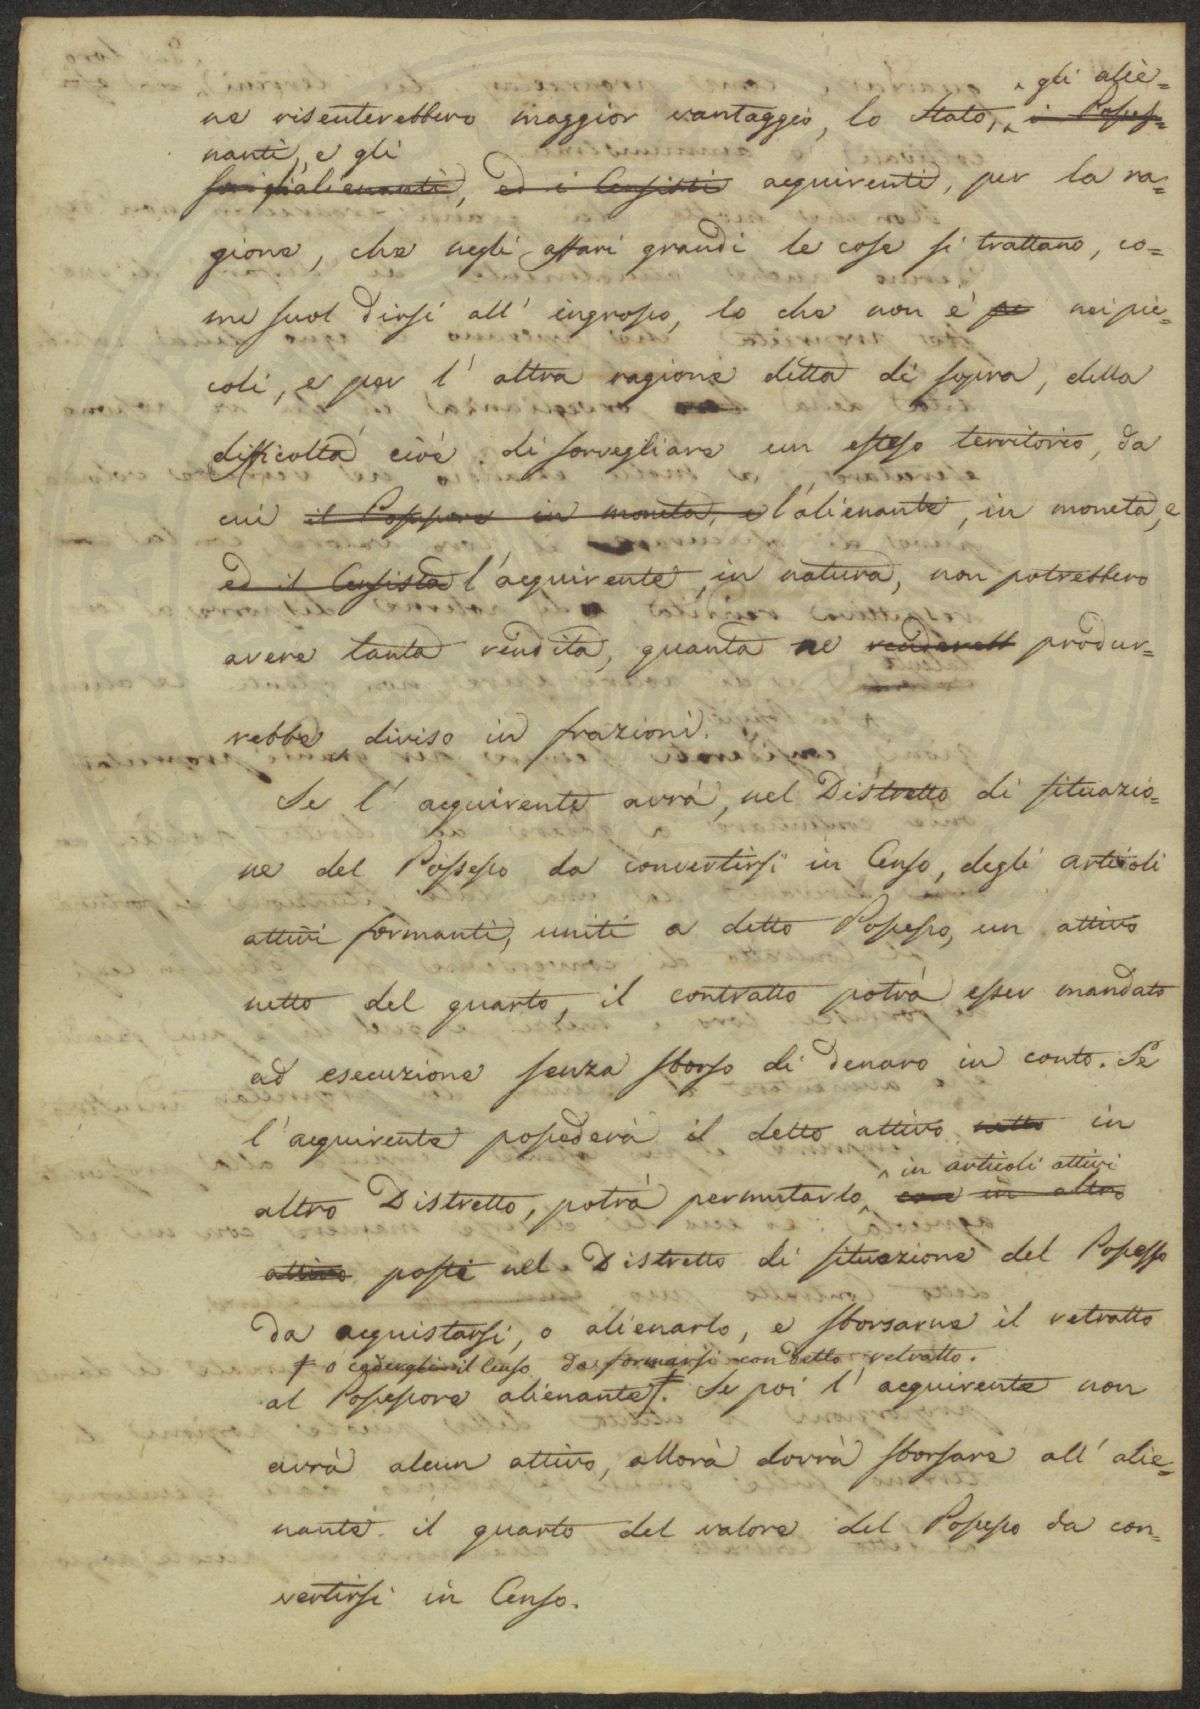 gli alie=
ne risenterebbero maggior vantaggio, lo Stato, i Posses=
nanti, e gli
sori gli alienanti, ed i Censisti acquirenti, per la ra=
gione, che negli affari grandi le cose si trattano, co=
me suol dirsi all' ingrosso, lo che non è pe nei pic=
coli, e per l' altra ragione ditta di sopra, della
difficoltà cioè di sorvegliare un esteso territorio, da
cui il Possessore in moneta, e l'alienante, in moneta, e
ed il Censista l'acquirente, in natura, non potrebbero
avere tanta rendita, quanta ne renderebb produr=
rebbe, diviso in frazioni.
Se l' acquirente avrà, nel Distretto di situazio=
ne del Possesso da convertirsi in Censo, degli articoli
attivi formanti, uniti a detto Possesso, un attivo
netto del quarto, il contratto potrà esser mandato
ad esecuzione senza sborso di denaro in conto. Se
l'acquirente possederà il detto attivo netto in
in articoli attivi
altro Distretto, potrà permutarlo, con in altro
attivo posti nel Distretto di situazione del Possesso
da acquistarsi, o alienarlo, e sborsarne il retratto
o cedergli il Censo da formarsi con detto retratto.
al Possessore alienante. Se poi l' acquirente non
avrà alcun attivo, allorà dovrà sborsare all' alie=
nante il quarto del valore del Possesso da con=
vertirsi in Censo.